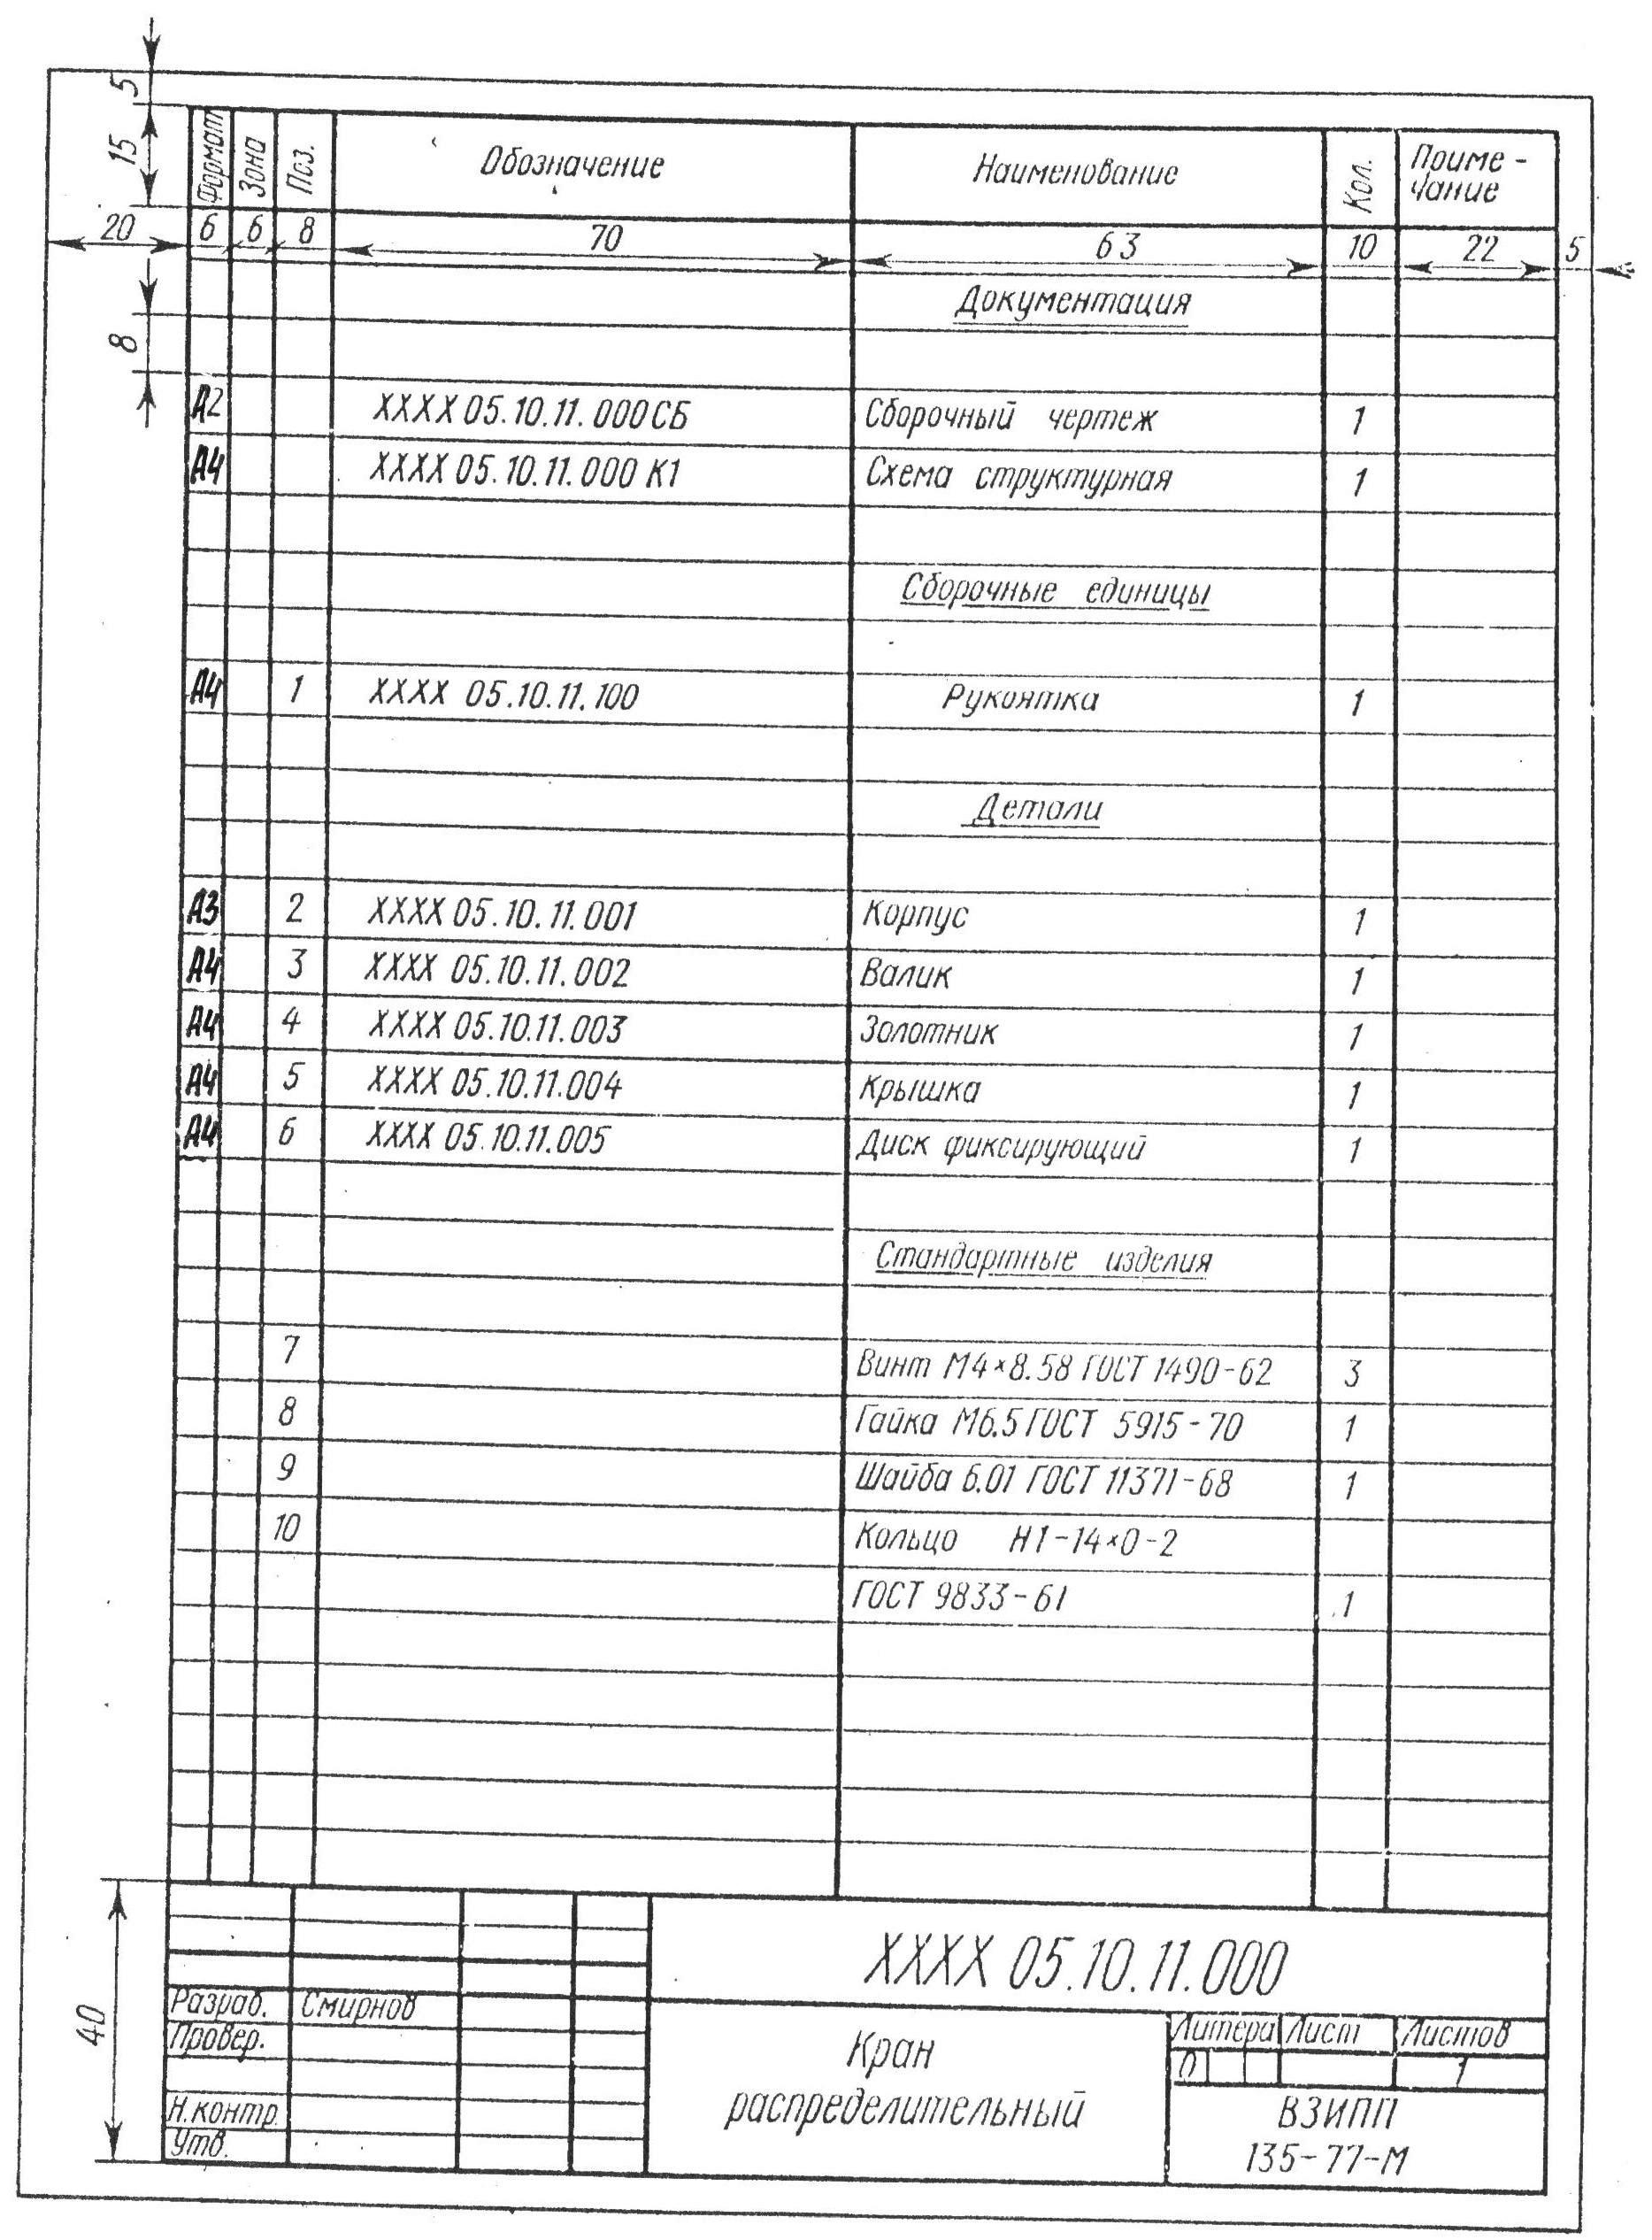 5
15
Формат Зона Поз. Обозначение Наименование Кол. Приме-
чание
20 6 6 8 70 63 10 22 5
Документация
8
А2 XXXX 05.10.11.000 СБ Сборочный чертеж 1
А4 XXXX 05.10.11.000 К1 Схема структурная 1
Сборочные единицы
А4 1 XXXX 05.10.11.100 Рукоятка 1
Детали
А3 2 XXXX 05.10.11.001 Корпус 1
А4 3 XXXX 05.10.11.002 Валик 1
А4 4 XXXX 05.10.11.003 Золотник 1
А4 5 XXXX 05.10.11.004 Крышка 1
А4 6 XXXX 05.10.11.005 Диск фиксирующий 1
Стандартные изделия
7 Винт М4×8.58 ГОСТ 1490-62 3
8 Гайка М6.5 ГОСТ 5915-70 1
9 Шайба 6.01 ГОСТ 11371-68 1
10 Кольцо Н1-14×0-2
ГОСТ 9833-61 1
40
XXXX 05.10.11.000
Разраб. Смирнов
Провер.
Н.контр.
Утв.
Кран
распределительный
Литера Лист Листов
О 1
ВЗИПП
135-77-М